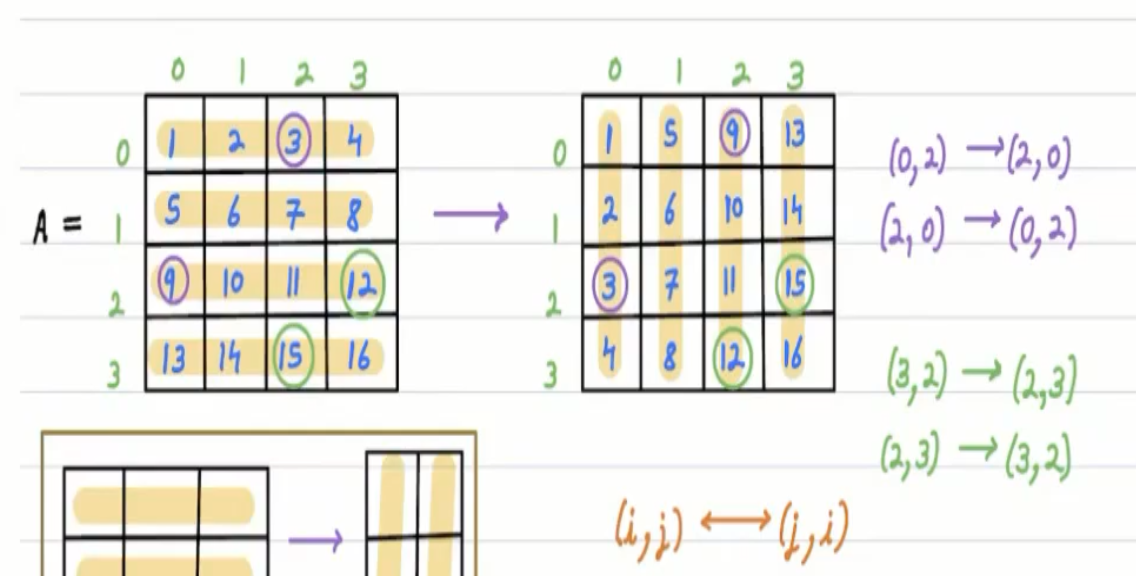 0 1 2 3
0 1 2 3 4
A = 1 5 6 7 8
2 9 10 11 12
3 13 14 15 16
0 1 2 3
0 1 5 9 13
1 2 6 10 14
2 3 7 11 15
3 4 8 12 16
(0,2) → (2,0)
(2,0) → (0,2)
(3,2) → (2,3)
(2,3) → (3,2)
(i,j) ↔ (j,i)